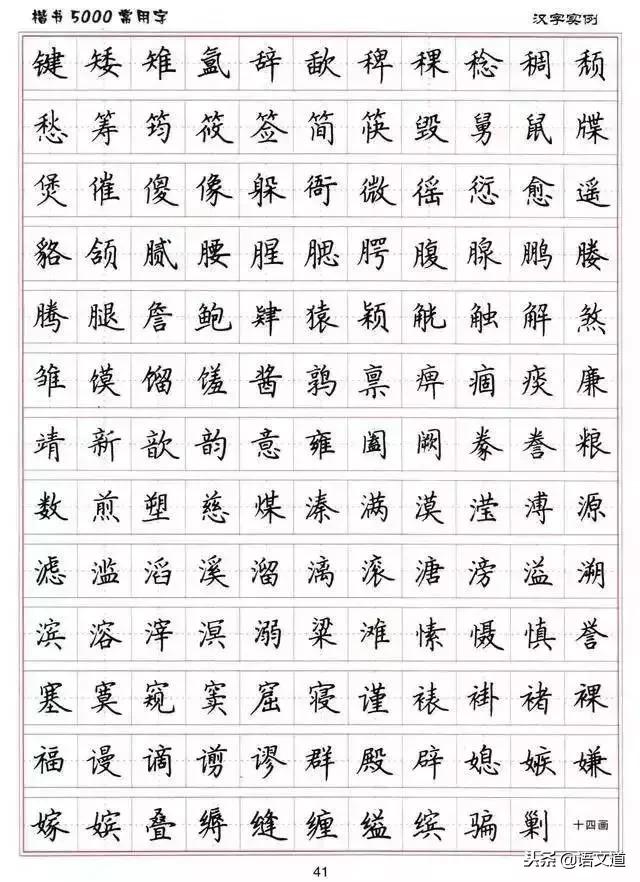 楷书5000常用字 汉字实例
键 矮 雉 氲 辞 歃 稗 稞 稔 稠 颓
愁 筹 筠 筱 签 简 筷 毁 舅 鼠 牒
煲 催 傻 像 躲 衙 微 徭 愆 愈 遥
貉 颌 腻 腰 腥 腮 腭 腹 腺 鹏 媵
腾 腿 詹 鲍 肄 猿 颖 觥 触 解 煞
雏 馍 馏 馐 酱 鹑 禀 痹 痼 痰 廉
靖 新 歆 韵 意 雍 阖 阙 豢 誊 粮
数 煎 塑 慈 煤 溱 满 漠 滢 溥 源
滤 滥 滔 溪 溜 漓 滚 溏 滂 溢 溯
滨 溶 滓 溟 溺 粱 滩 愫 慑 慎 誉
塞 寞 窥 窦 窟 寝 谨 裱 褂 褚 裸
福 谩 谪 谫 谬 群 殿 辟 媳 嫉 嫌
嫁 嫔 叠 缛 缝 缠 缢 缤 骗 剿 十四画
41
头条@语文道